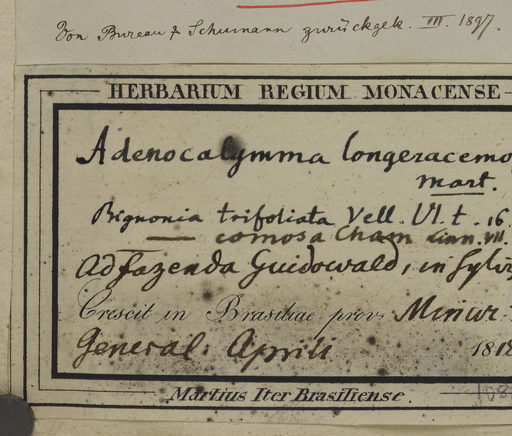 Von Bureau & Schumann zurückgek. III. 1897.
HERBARIUM REGIUM MONACENSE
Adenocalymma longeracemo
mart.
Bignonia trifoliata Vell. VI. t. 16
— comosa Cham Linn. VII.
Ad fazenda Guidowald, in sylv
Crescit in Brasiliae prov. Minar.
General. Aprili 1818
Martius Iter Brasiliense.